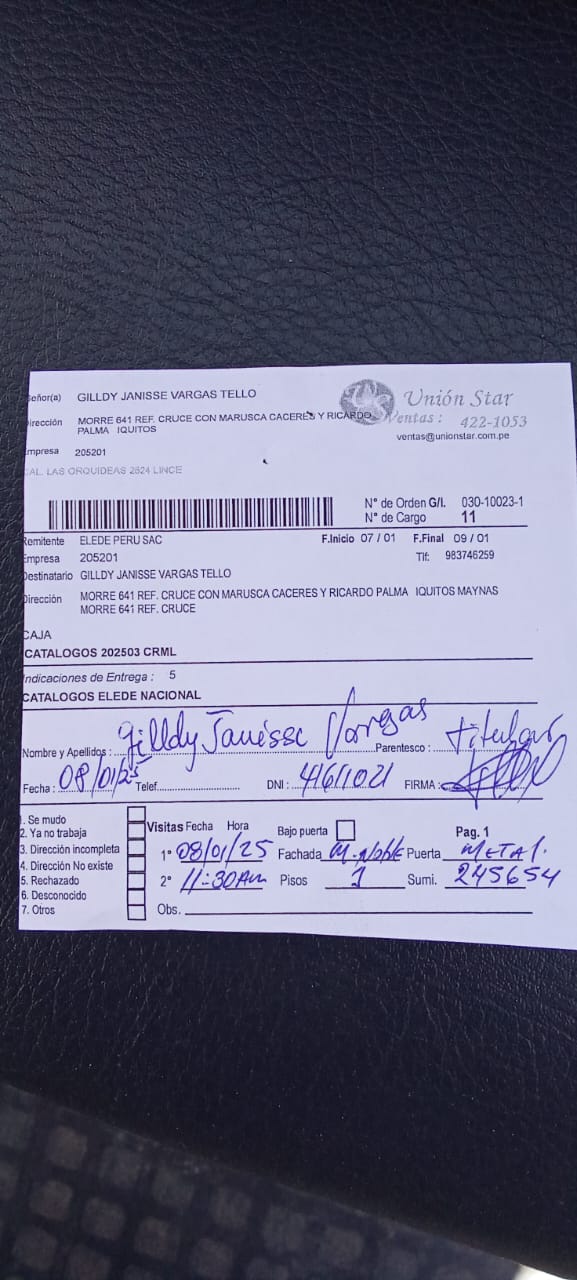 eñor(a) GILLDY JANISSE VARGAS TELLO
Unión Star
irección MORRE 641 REF. CRUCE CON MARUSCA CACERES Y RICARDO
PALMA IQUITOS
Ventas : 422-1053
ventas@unionstar.com.pe
mpresa 205201
CAL. LAS ORQUIDEAS 2624 LINCE
N° de Orden G/I. 030-10023-1
N° de Cargo 11
Remitente ELEDE PERU SAC F.Inicio 07 / 01 F.Final 09 / 01
Empresa 205201 Tlf: 983746259
Destinatario GILLDY JANISSE VARGAS TELLO
Dirección MORRE 641 REF. CRUCE CON MARUSCA CACERES Y RICARDO PALMA IQUITOS MAYNAS
MORRE 641 REF. CRUCE
CAJA
CATALOGOS 202503 CRML
Indicaciones de Entrega : 5
CATALOGOS ELEDE NACIONAL
Nombre y Apellidos : Gilldy Janisse Vargas Parentesco : titular
Fecha : 08/01/25 Telef. DNI : 41611021 FIRMA :
1. Se mudo
2. Ya no trabaja
3. Dirección incompleta
4. Dirección No existe
5. Rechazado
6. Desconocido
7. Otros
Visitas Fecha Hora Bajo puerta Pag. 1
1° 08/01/25 Fachada M. Noble Puerta METAL.
2° 11:30Am Pisos 1 Sumi. 245654
Obs.